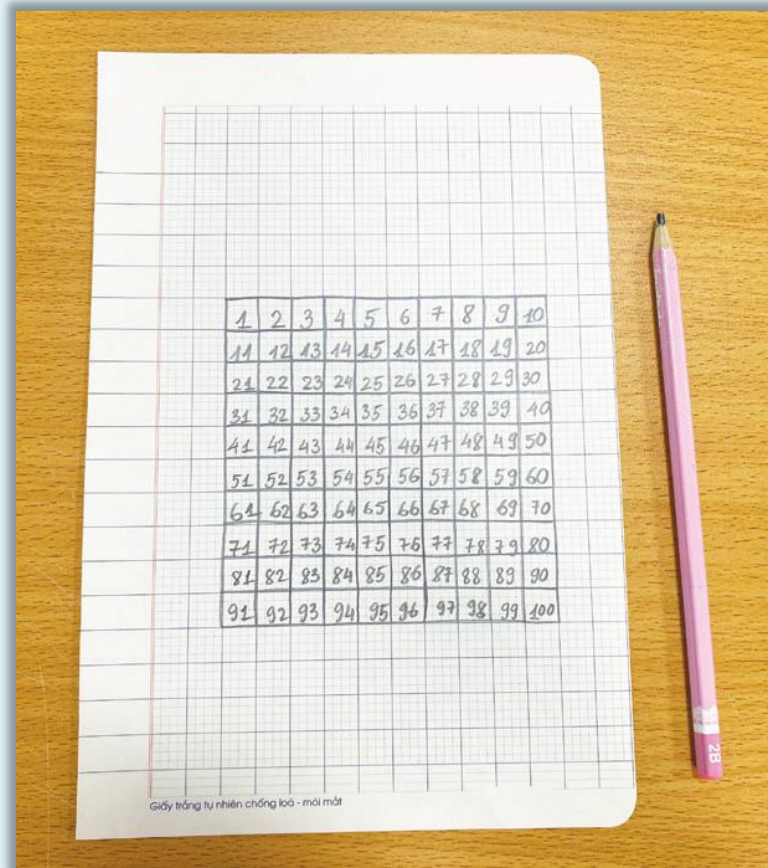 1 2 3 4 5 6 7 8 9 10
11 12 13 14 15 16 17 18 19 20
21 22 23 24 25 26 27 28 29 30
31 32 33 34 35 36 37 38 39 40
41 42 43 44 45 46 47 48 49 50
51 52 53 54 55 56 57 58 59 60
61 62 63 64 65 66 67 68 69 70
71 72 73 74 75 76 77 78 79 80
81 82 83 84 85 86 87 88 89 90
91 92 93 94 95 96 97 98 99 100
2B
Giấy trắng tự nhiên chống loá - mỏi mắt